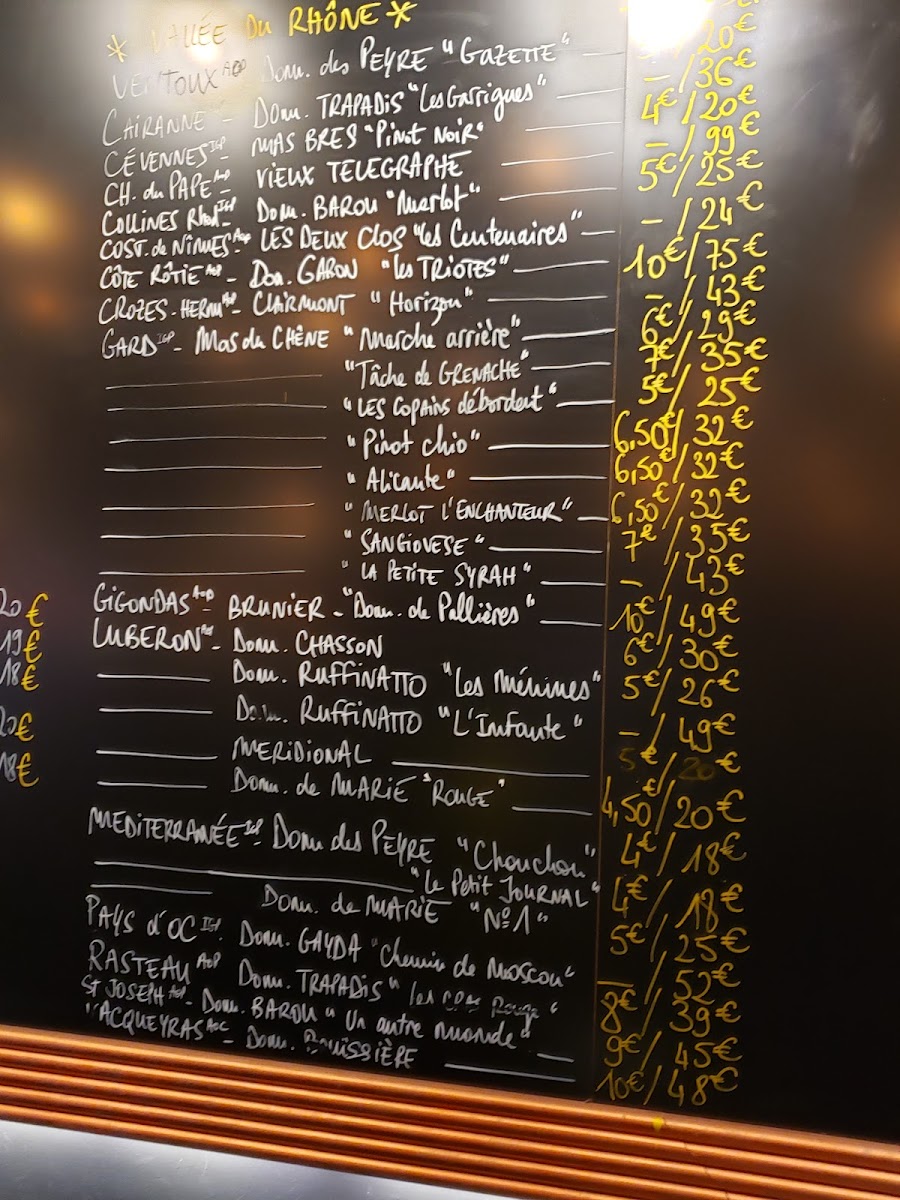 * VALLÉE DU RHÔNE *
VENTOUX AOP - Dom. des PEYRE "GAZETTE" — 20€
CAIRANNE - Dom. TRAPADIS "Les Garrigues" — - / 36€
CÉVENNES IGP - MAS BRES "Pinot NOIR" — 4€ / 20€
CH. du PAPE AOP - VIEUX TELEGRAPHE — - / 99€
COLLINES Rhod. IGP - Dom. BAROU "Merlot" — 5€ / 25€
COST. de NÎMES AOP - LES DEUX Clos "les Centenaires" — - / 24€
CÔTE RÔTIE AOP - Dom. GARON "les TRIOTES" — 10€ / 75€
CROZES-HERM. AOP - CLAIRMONT "Horizon" — - / 43€
GARD IGP - Mas du CHÊNE "Marche arrière" — 6€ / 29€
— "Tâche de GRENACHE" — 7€ / 35€
— "LES COPAINS débordent" — 5€ / 25€
— "Pinot chio" — 6,50€ / 32€
— "Alicante" — 6,50€ / 32€
— "MERLOT L'ENCHANTEUR" — 6,50€ / 32€
— "SANGIOVESE" — 7€ / 35€
— "LA PETITE SYRAH" — - / 43€
GIGONDAS AOP - BRUNIER - "Dom. de Pallières" — 10€ / 49€
LUBERON AOP - Dom. CHASSON 6€ / 30€
— Dom. RUFFINATTO "Les Ménines" 5€ / 26€
— Dom. RUFFINATTO "L'Infante" - / 49€
— MERIDIONAL — 5€ 20€
— Dom. de MARIE "ROUGE" — 4,50 / 20€
MEDITERRANÉE IGP - Dom des PEYRE "Chouchou" 4€ / 18€
— "Le Petit JOURNAL" 4€ / 18€
— Dom. de MARIE "N°1" 5€ / 25€
PAYS d'OC IGP. Dom. GAYDA "Chemin de Moscou" - / 52€
RASTEAU AOP Dom. TRAPADIS "les 8€ / 39€
ST JOSEPH AOP - Dom. BAROU "Un autre monde" — 9€ / 45€
VACQUEYRAS AOC - Dom. BOUISSIÈRE — 10€ / 48€
20€
19€
18€
20€
18€